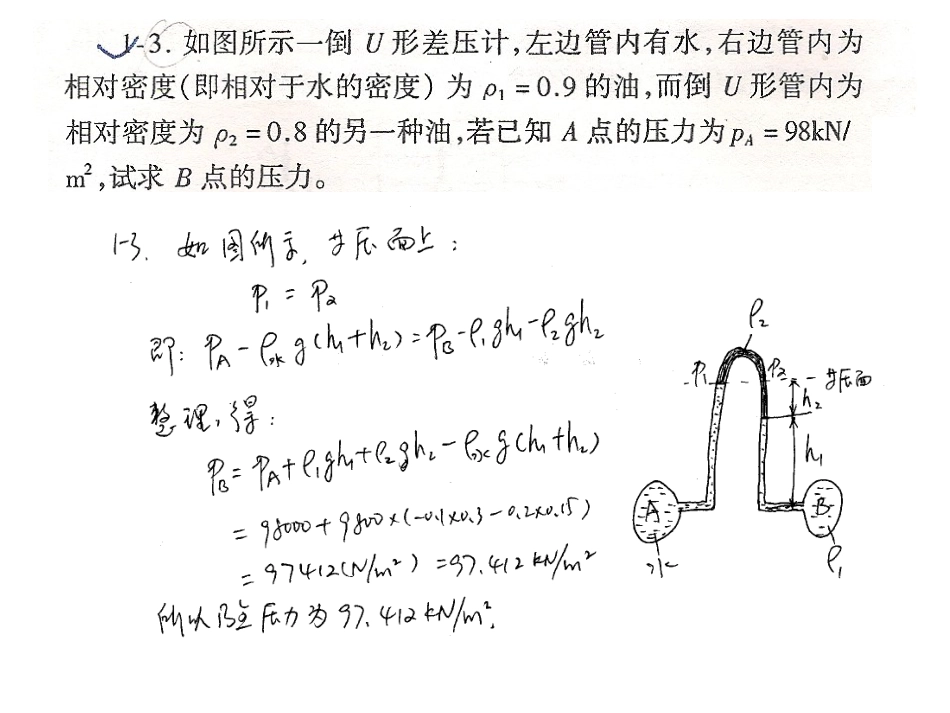 1-3. 如图所示一倒 U 形差压计,左边管内有水,右边管内为
相对密度(即相对于水的密度)为 ρ₁ = 0.9 的油,而倒 U 形管内为
相对密度为 ρ₂ = 0.8 的另一种油,若已知 A 点的压力为 p_A = 98kN/
m²,试求 B 点的压力。
1-3. 如图所示, 等压面上:
P₁ = P₂
即: P_A - ρ水 g(h₁+h₂) = P_B - ρ₁gh₁ - ρ₂gh₂
整理,得:
P_B = P_A + ρ₁gh₁ + ρ₂gh₂ - ρ水 g(h₁+h₂)
= 98000 + 9800×(-0.1×0.3-0.2×0.15)
= 97412(N/m²) = 97.412 kN/m²
所以B点压力为 97.412 kN/m².
ρ₂
P₁
P₂
等压面
h₂
h₁
A
B
水
ρ₁